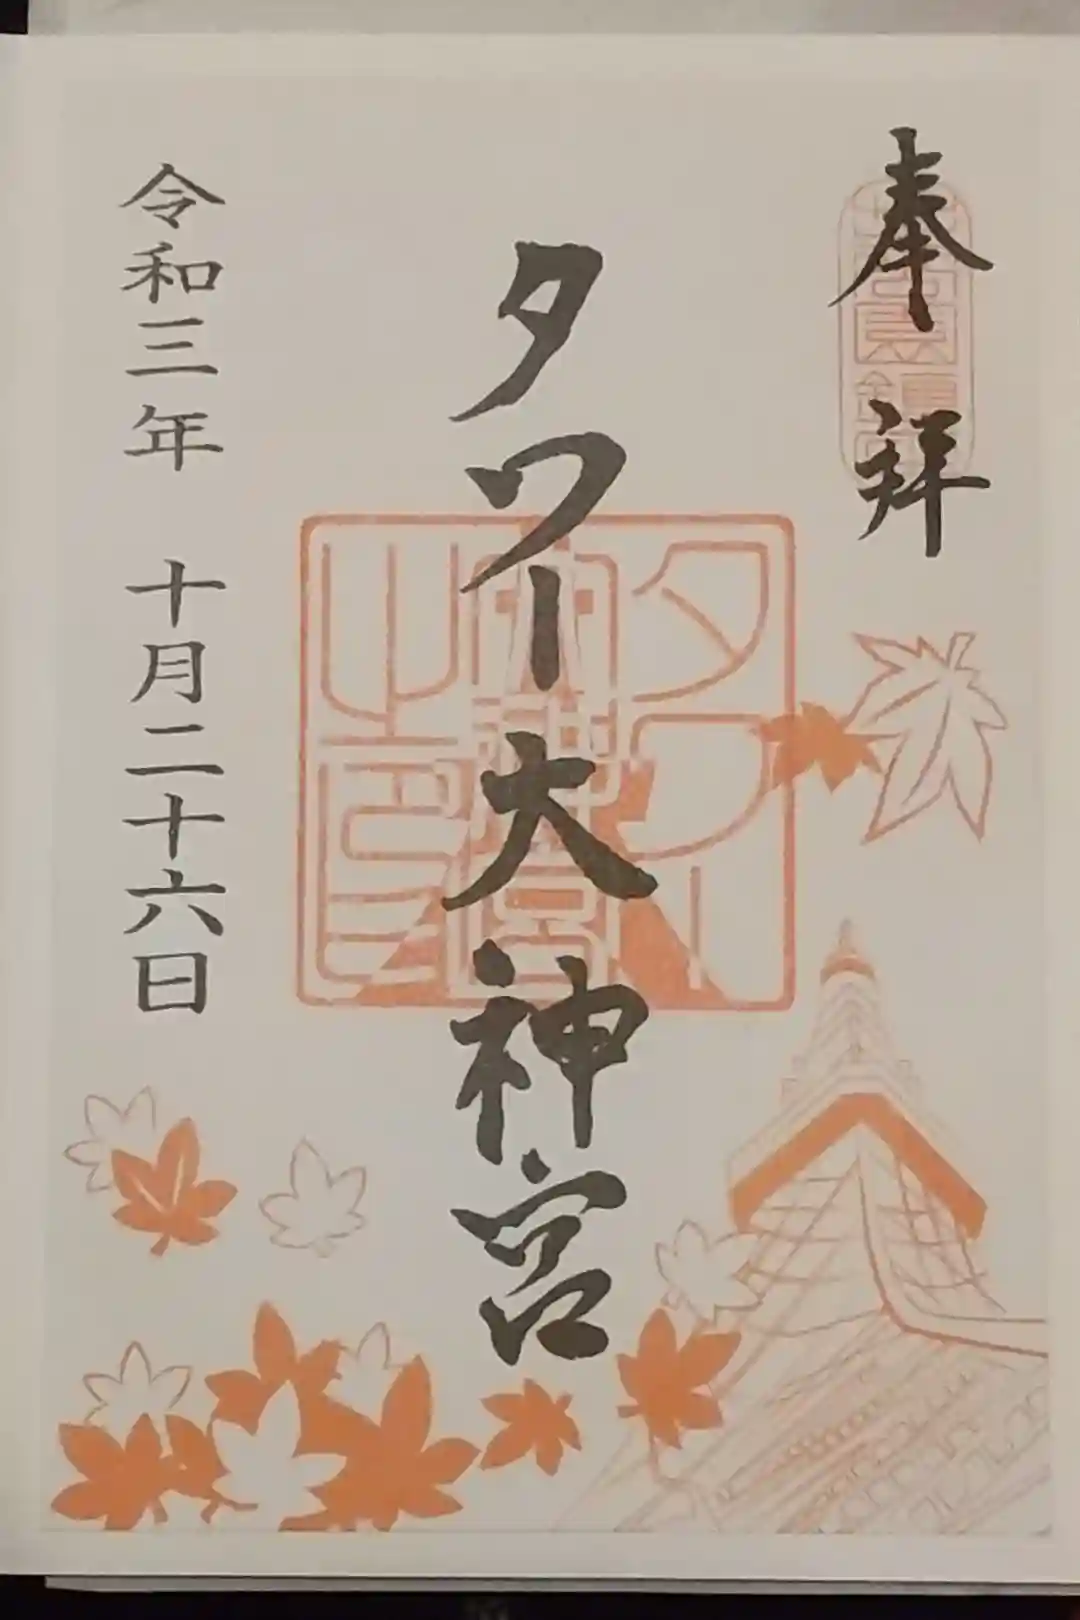 奉拝
タワー大神宮
令和三年 十月二十六日
タワー
大神宮
之印